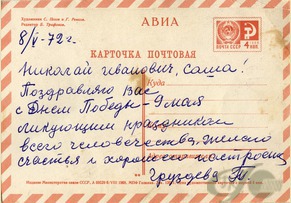 Художники С. и Г.
Редактор О. Трофимов.
АВИА
8/V-72 г.
КАРТОЧКА ПОЧТОВАЯ
ПОЧТА СССР 4 коп
Николай Иванович, Саша!
Куда
Поздравляю Вас
с Днём Победы - 9 мая
ликующим праздником
всего человечества. Желаю
счастья и хорошего настроения
Груздева Т.
Издание Министерства связи СССР.